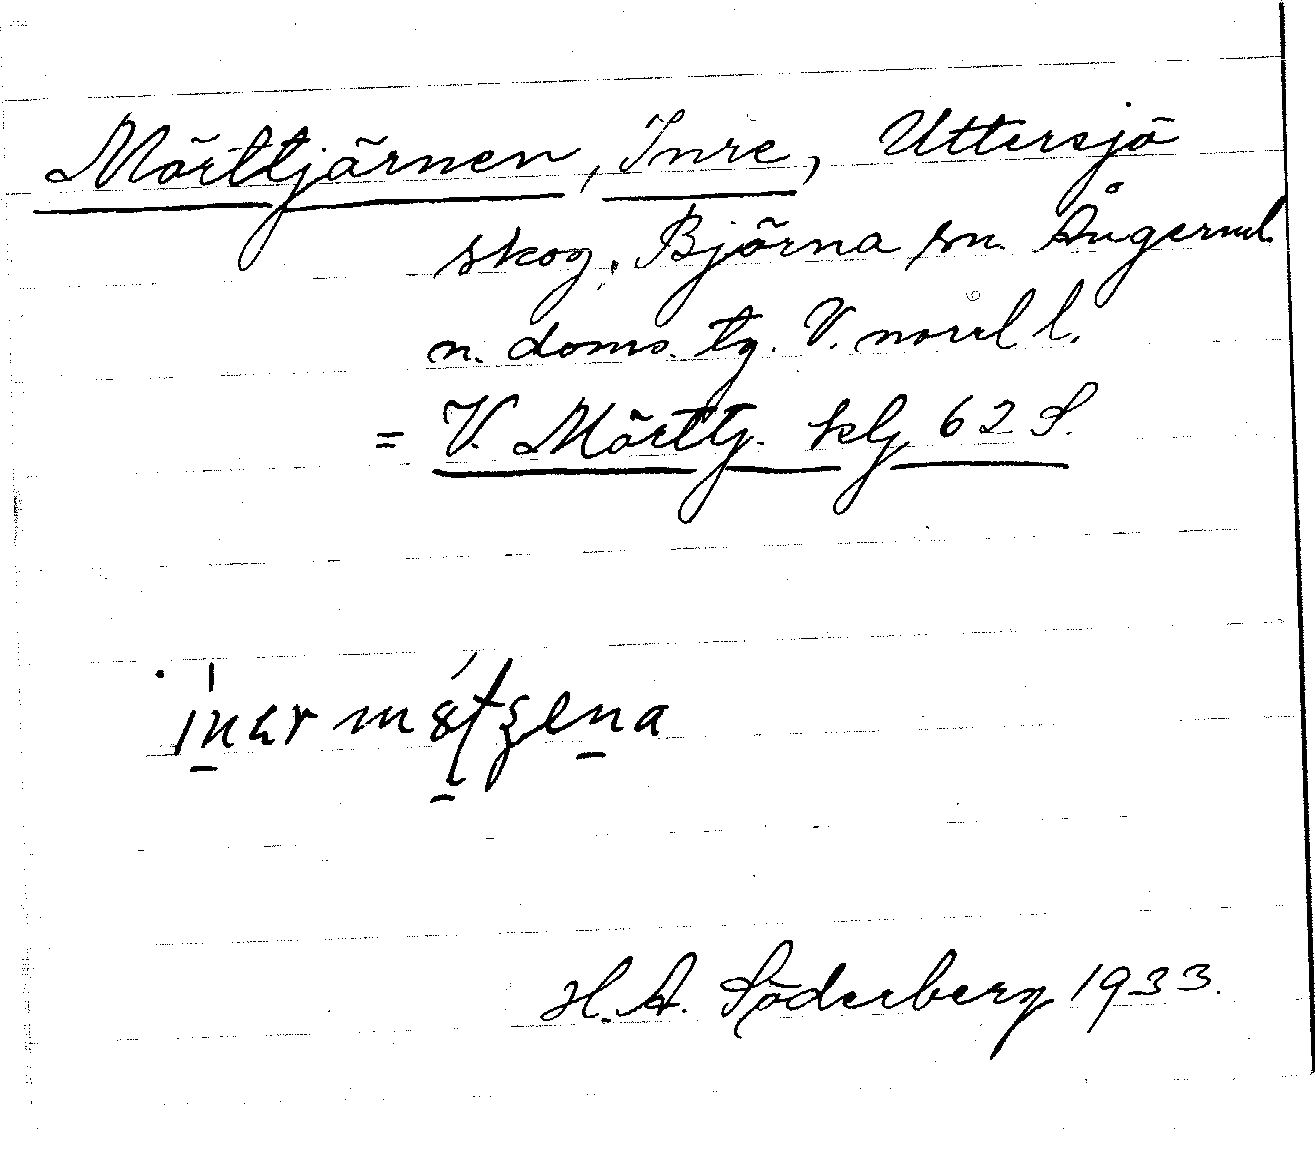 Mörttjärnen, Inre, Uttersjö
skog, Björna sn. Ångerml.
n. doms. tg. V. norrl l.
= V. Mörttj. kbl 62 S.
H. A. Söderberg 1933.